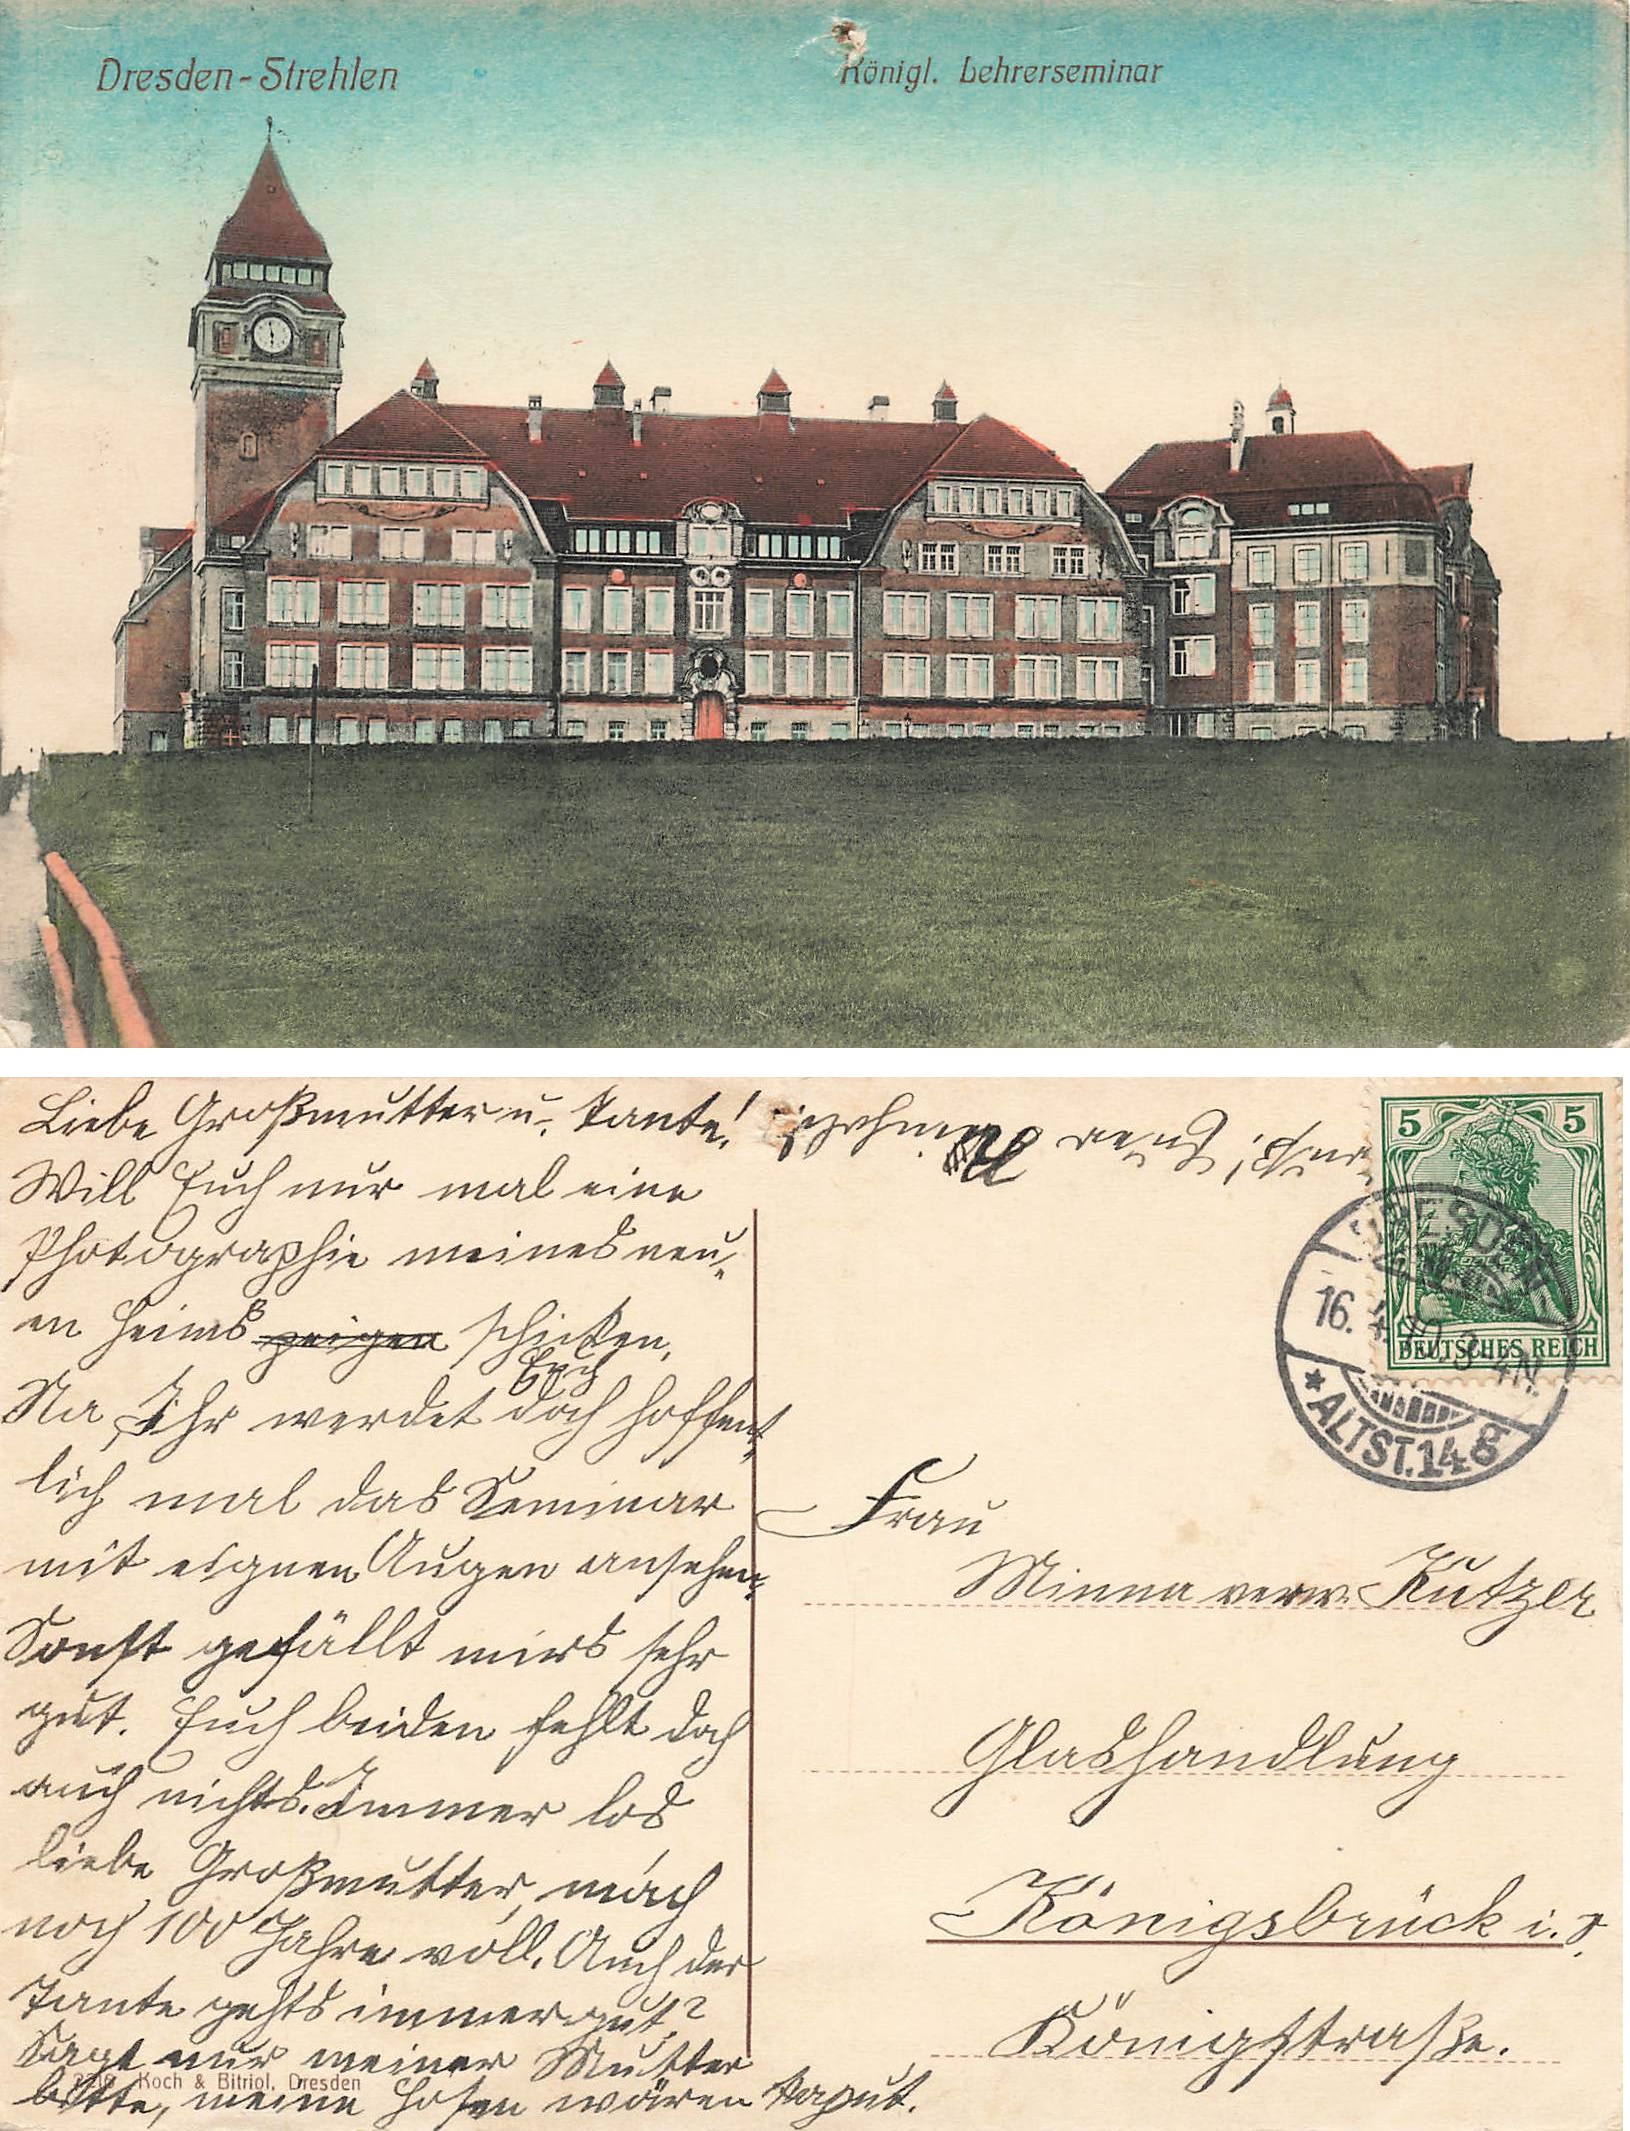 Dresden-Strehlen
Königl. Lehrerseminar
Liebe Großmutter u. Tante!
Will Euch nur mal eine
Photographie meines neu-
en Heims zeigen schicken.
Na, Ihr werdet Euch doch hoffent-
lich mal das Seminar
mit eignen Augen ansehen.
Sonst gefällt mirs sehr
gut. Euch beiden fehlt doch
auch nichts. Immer los
liebe Großmutter, mach
noch 100 Jahre voll. Auch der
Tante gehts immer gut?
Sagt nur meiner Mutter
bitte, meine Hosen wären kaput.
Koch & Bitriol, Dresden
5 5
DEUTSCHES REICH
DRESDEN
16. 4. 10. 3-4N.
*ALTST. 14 g
Frau
Minna verw. Kutzer
Glashandlung
Königsbrück i. S.
Königstraße.